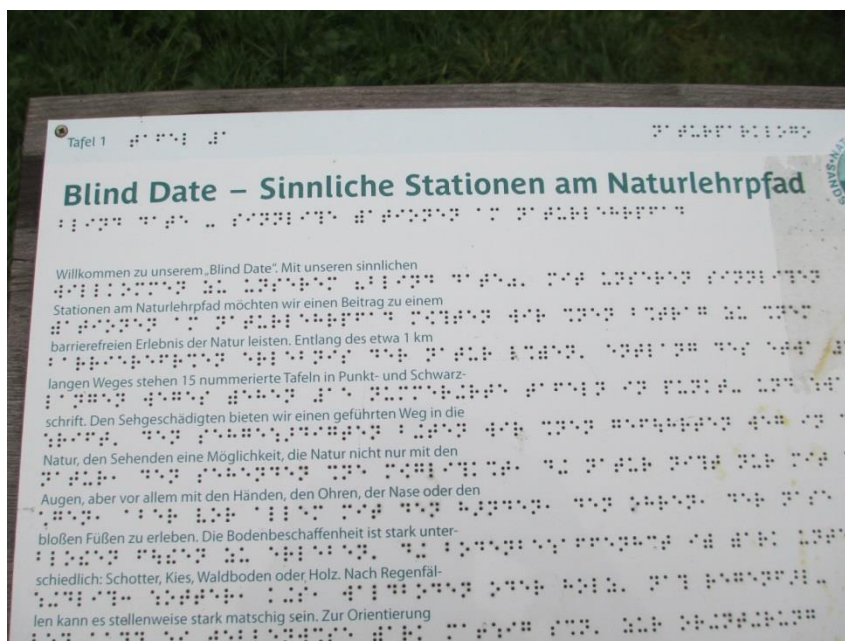 Tafel 1
Blind Date – Sinnliche Stationen am Naturlehrpfad
Willkommen zu unserem „Blind Date“. Mit unseren sinnlichen
Stationen am Naturlehrpfad möchten wir einen Beitrag zu einem
barrierefreien Erlebnis der Natur leisten. Entlang des etwa 1 km
langen Weges stehen 15 nummerierte Tafeln in Punkt- und Schwarz-
schrift. Den Sehgeschädigten bieten wir einen geführten Weg in die
Natur, den Sehenden eine Möglichkeit, die Natur nicht nur mit den
Augen, aber vor allem mit den Händen, den Ohren, der Nase oder den
bloßen Füßen zu erleben. Die Bodenbeschaffenheit ist stark unter-
schiedlich: Schotter, Kies, Waldboden oder Holz. Nach Regenfäl-
len kann es stellenweise stark matschig sein. Zur Orientierung